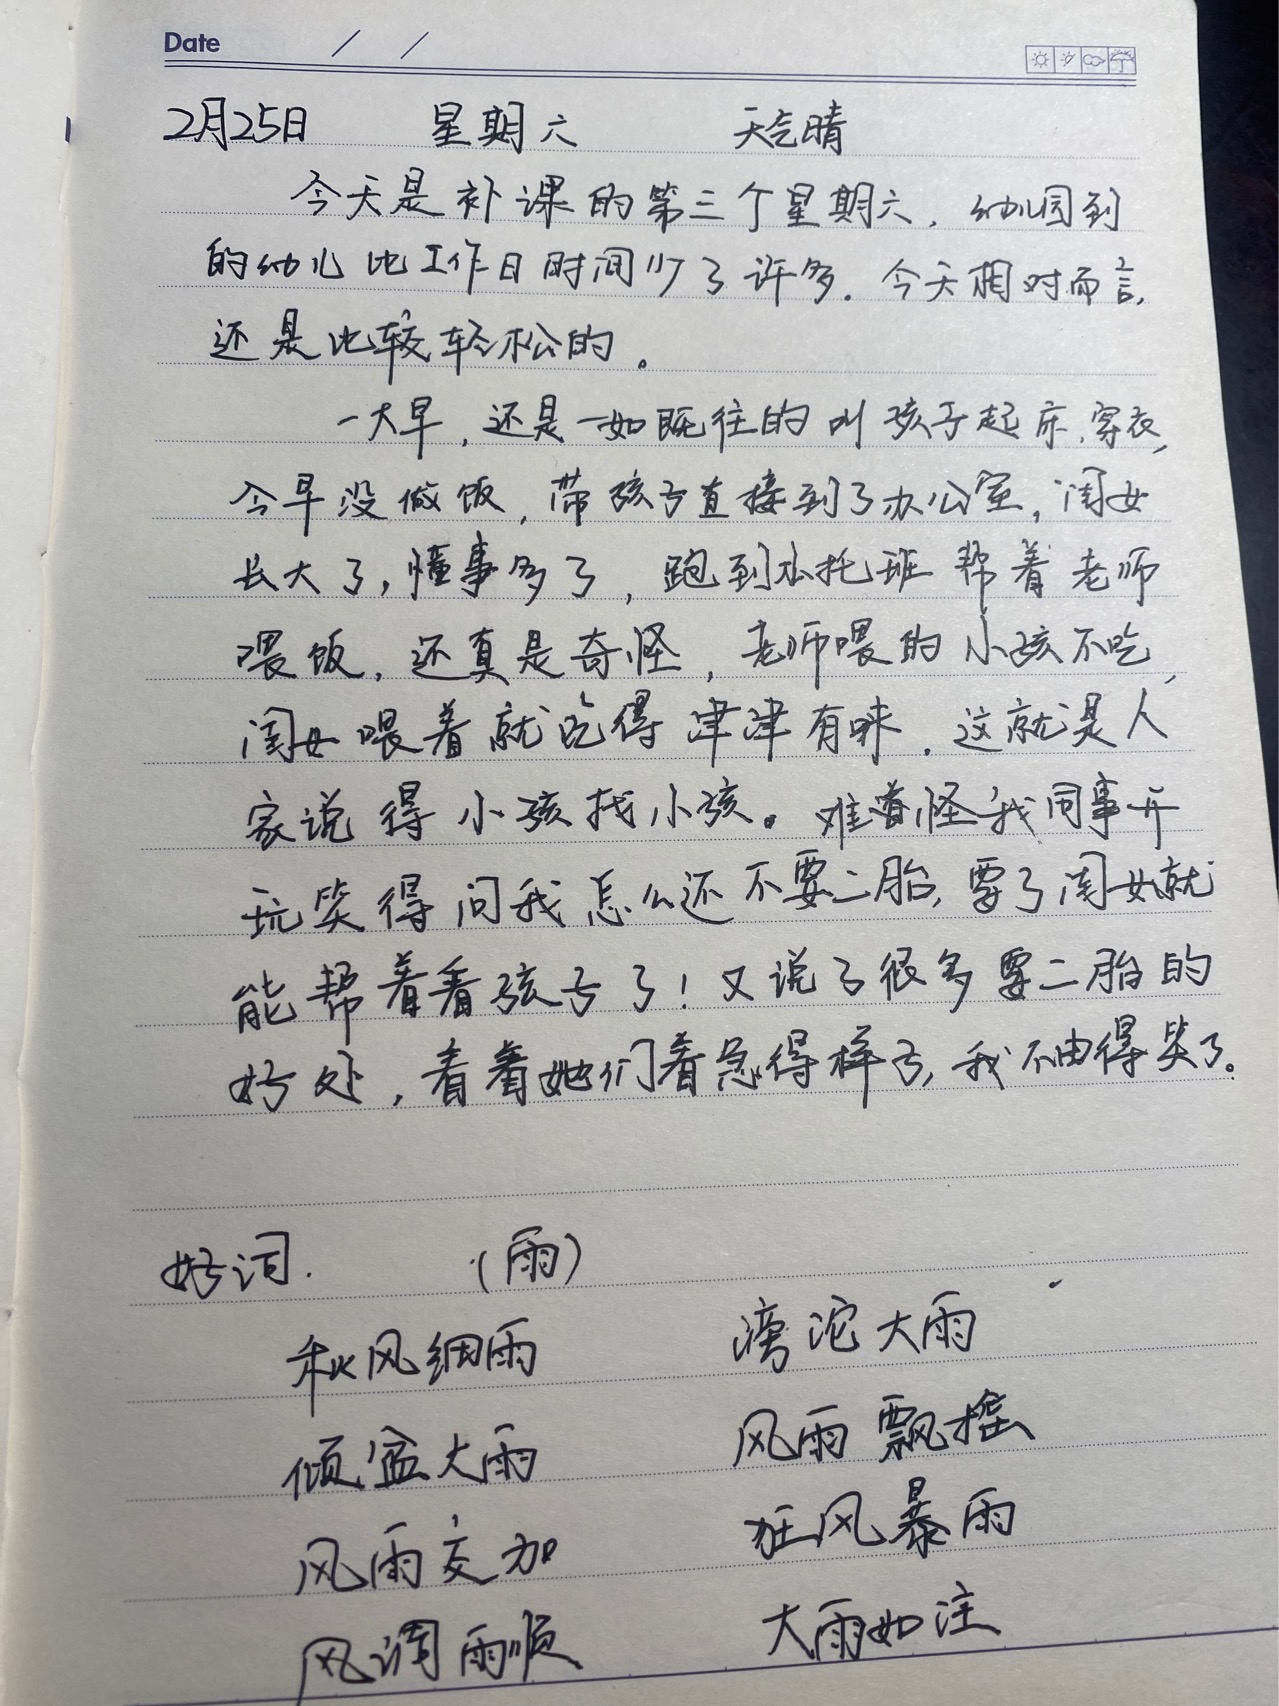 Date / /
2月25日 星期六 天气晴
今天是补课的第三个星期六，幼儿园到
的幼儿比工作日时间少了许多。今天相对而言，
还是比较轻松的。
一大早，还是一如既往的叫孩子起床，穿衣，
今早没做饭，带孩子直接到了办公室，闺女
长大了，懂事多了，跑到小托班帮着老师
喂饭，还真是奇怪，老师喂的小孩不吃，
闺女喂着就吃得津津有味，这就是人
家说得小孩找小孩。难怪我同事开
玩笑得问我怎么还不要二胎，要了闺女就
能帮着看孩子了！又说了很多要二胎的
好处，看着她们着急得样子，我不由得笑了。
好词. （雨）
和风细雨 滂沱大雨
倾盆大雨 风雨飘摇
风雨交加 狂风暴雨
风调雨顺 大雨如注